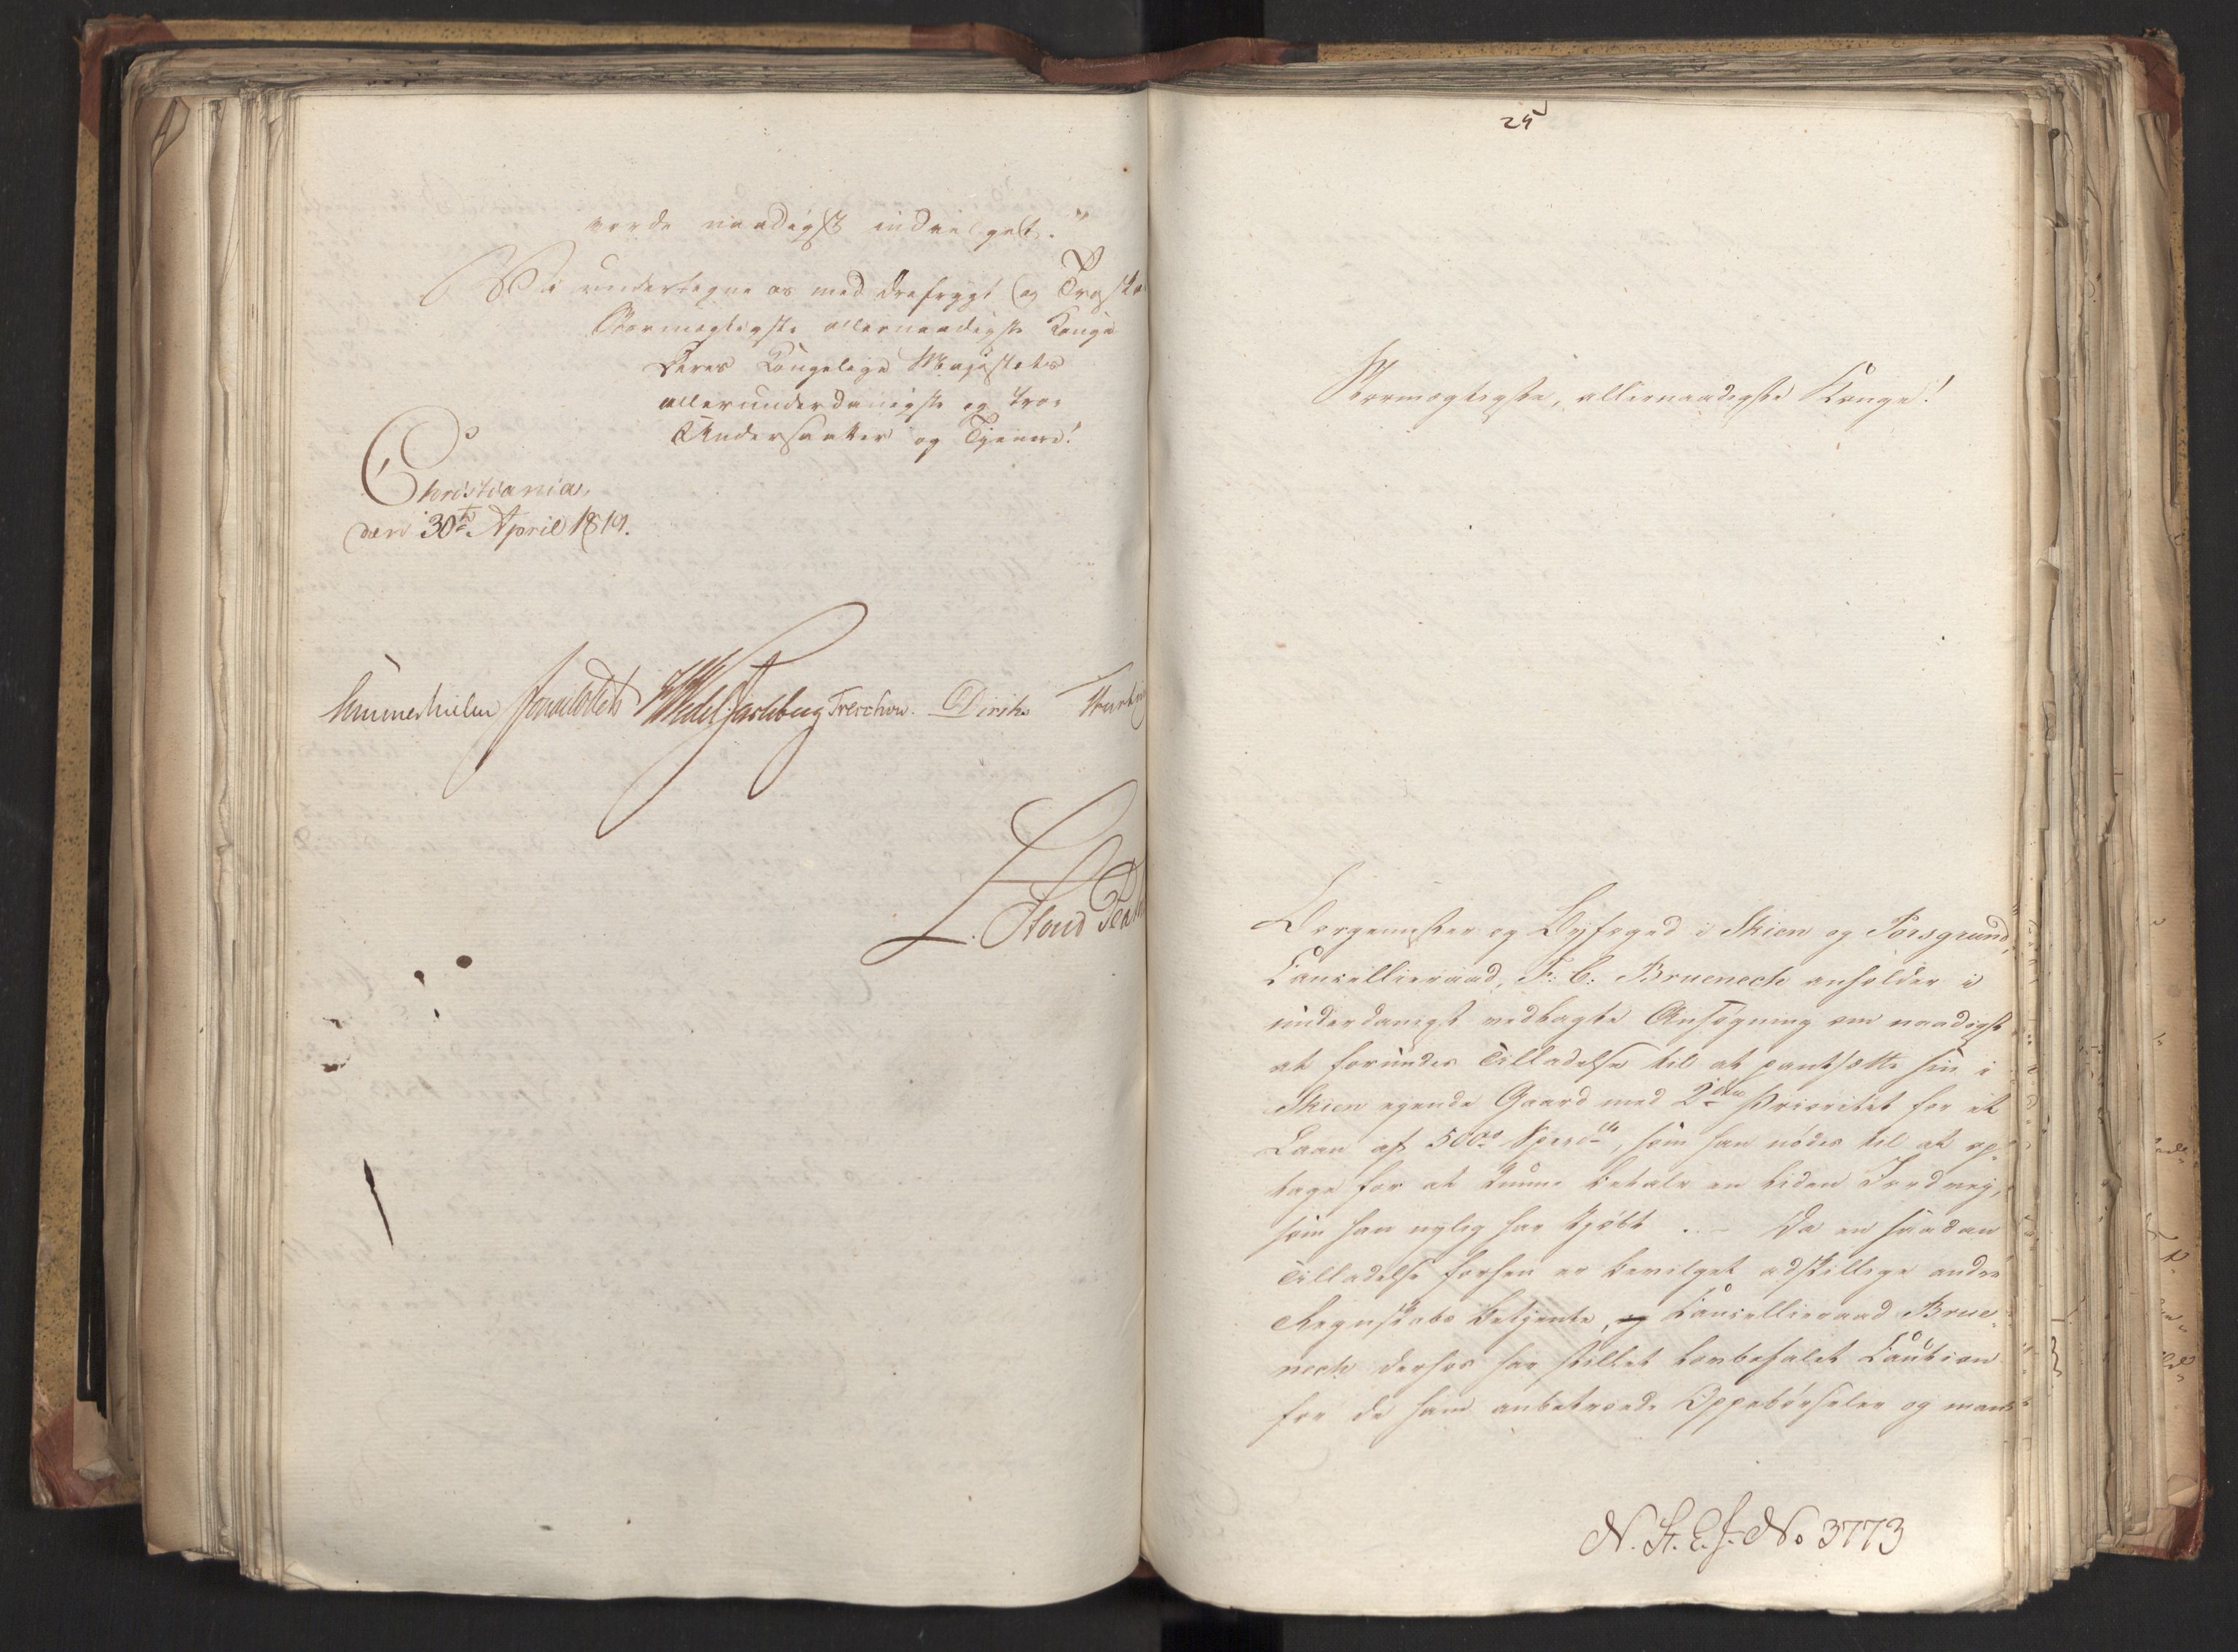 vorde naadigst indvilget."
Vi undertegne os med Ærefrygt og Troskab
Stormægtigste allernaadigste Konge
Deres Kongelige Majestæts
allerunderdanigste og troe
Undersaatter og Tjenere!
Christiania,
den 30te April 1819.
Sommerhielm Jonas Collett HWedel Jarlsberg Treschow. Diriks
L. Stoud
25
Stormægtigste, allernaadigste Konge!
Borgemester og Byfoged i Skien og Porsgrund,
Cancellieraad, F: C: Bruenech anholder i
underdanigst vedlagte Ansøgning om naadigst
at forundes Tilladelse til at pantsætte sin i
Skien eyende Gaard med 2den Prioritet for et
Laan af 500 Spesd, som han nødes til at op-
tage for at kunne betale en liden Jordvej,
som han nylig har kjøbt. – Da en saadan
Tilladelse forhen er bevilget adskillige andre
Regnskabs Betjente, og Cancellieraad Brue-
nech derhos har stillet lovbefalet Caution
for de ham anbetroede Oppebørseler og man-
N. St. E. J. No 3773